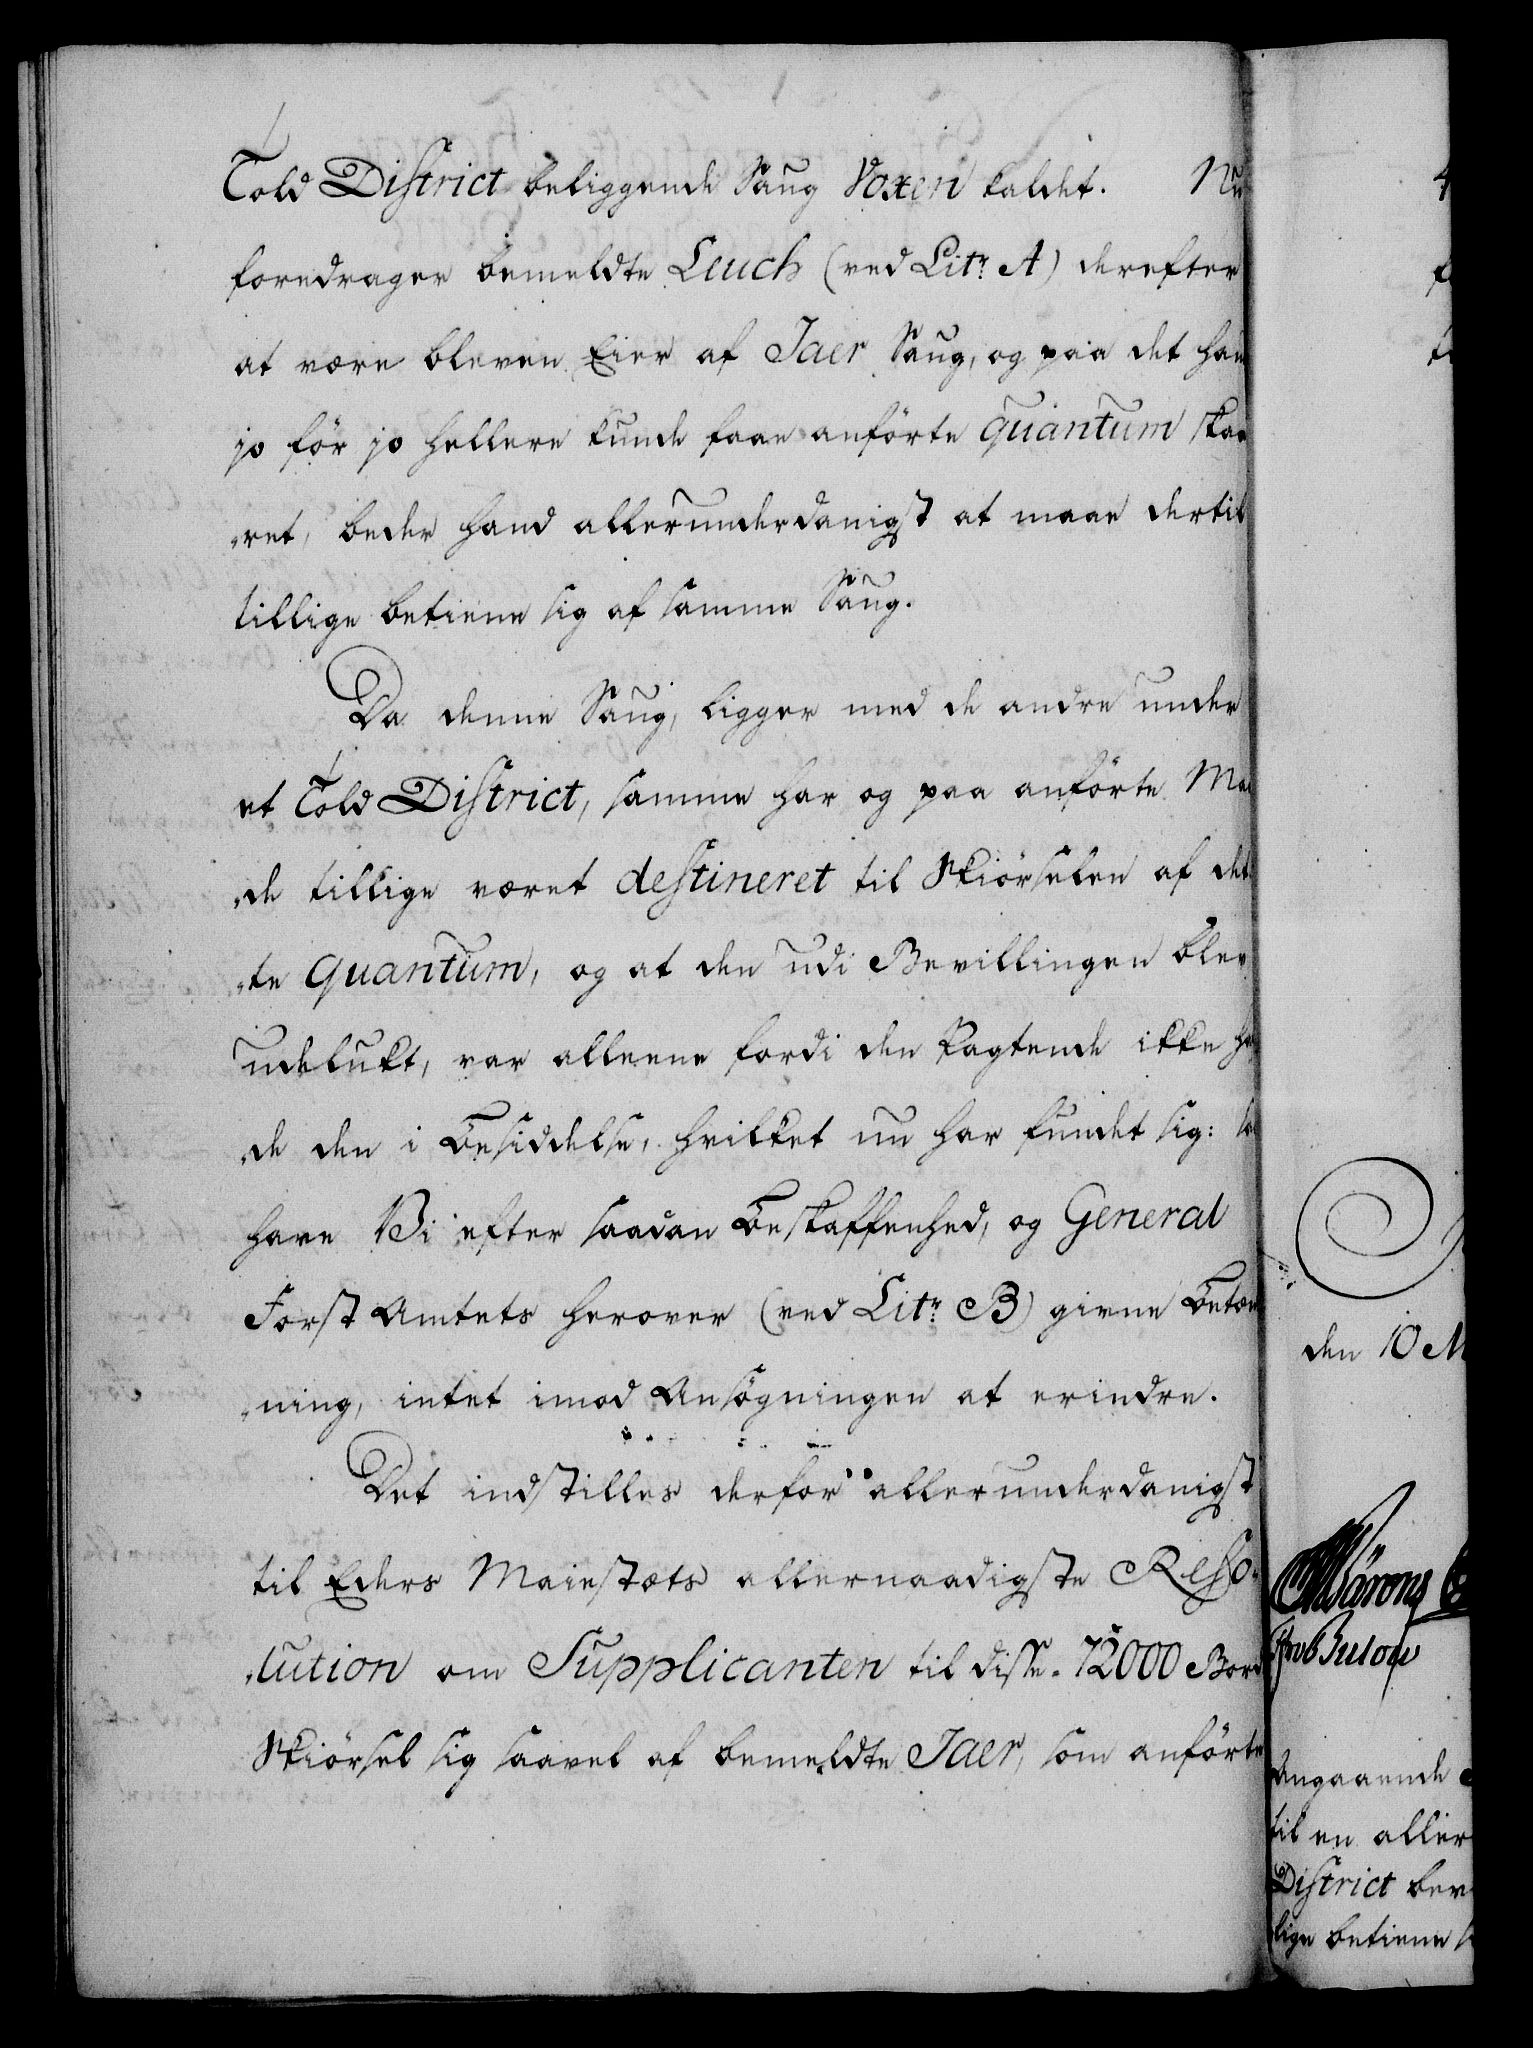 Told District beliggende Saug Voxen kaldet. Nu
foredrager bemeldte Leuch (ved Litr. A) derefter
at være bleven Eier af Jaer Saug, og paa det han
jo før jo hellere kunde faae anførte quantum skaa
„ret, beder hand allerunderdanigst at maae dertil
tillige betiene sig af samme Saug.
Da denne Saug, ligger med de andre under
et Told District, samme har og paa anførte Maa
„de tillige været destineret til Skiørselen af det
„te quantum, og at den udi Bevillingen blev
udelukt, var alleene fordi den Sagtende ikke ha
„de den i Besiddelse, hvilket nu har fundet sig: saa
have Vi efter saadan Beskaffenhed, og General
Forst Amtets herover (ved Litr. B) givne Betæn
„ning, intet imod Ansøgningen at erindre.
Det indstilles derfor allerunderdanigst
til Eders Maiestæts allernaadigste Reso-
„lution om Supplicanten til disse 72000 Bord
Skiørsel sig saavel af bemeldte Jaer, som anførte
den 10 M
Bulow
Angaaende
til en aller
District bev
lige betiene s